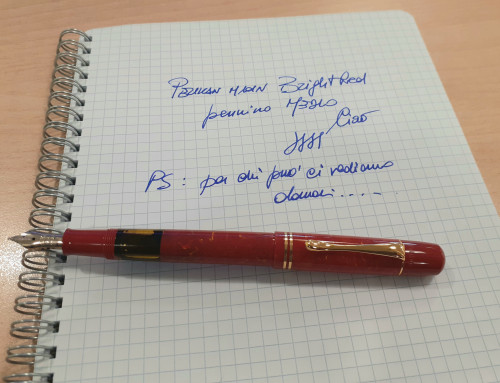 PELIKAN M101N Bright Red
pennino MEDIO
Ciao
PS : per chi puo' ci vediamo
domani.....